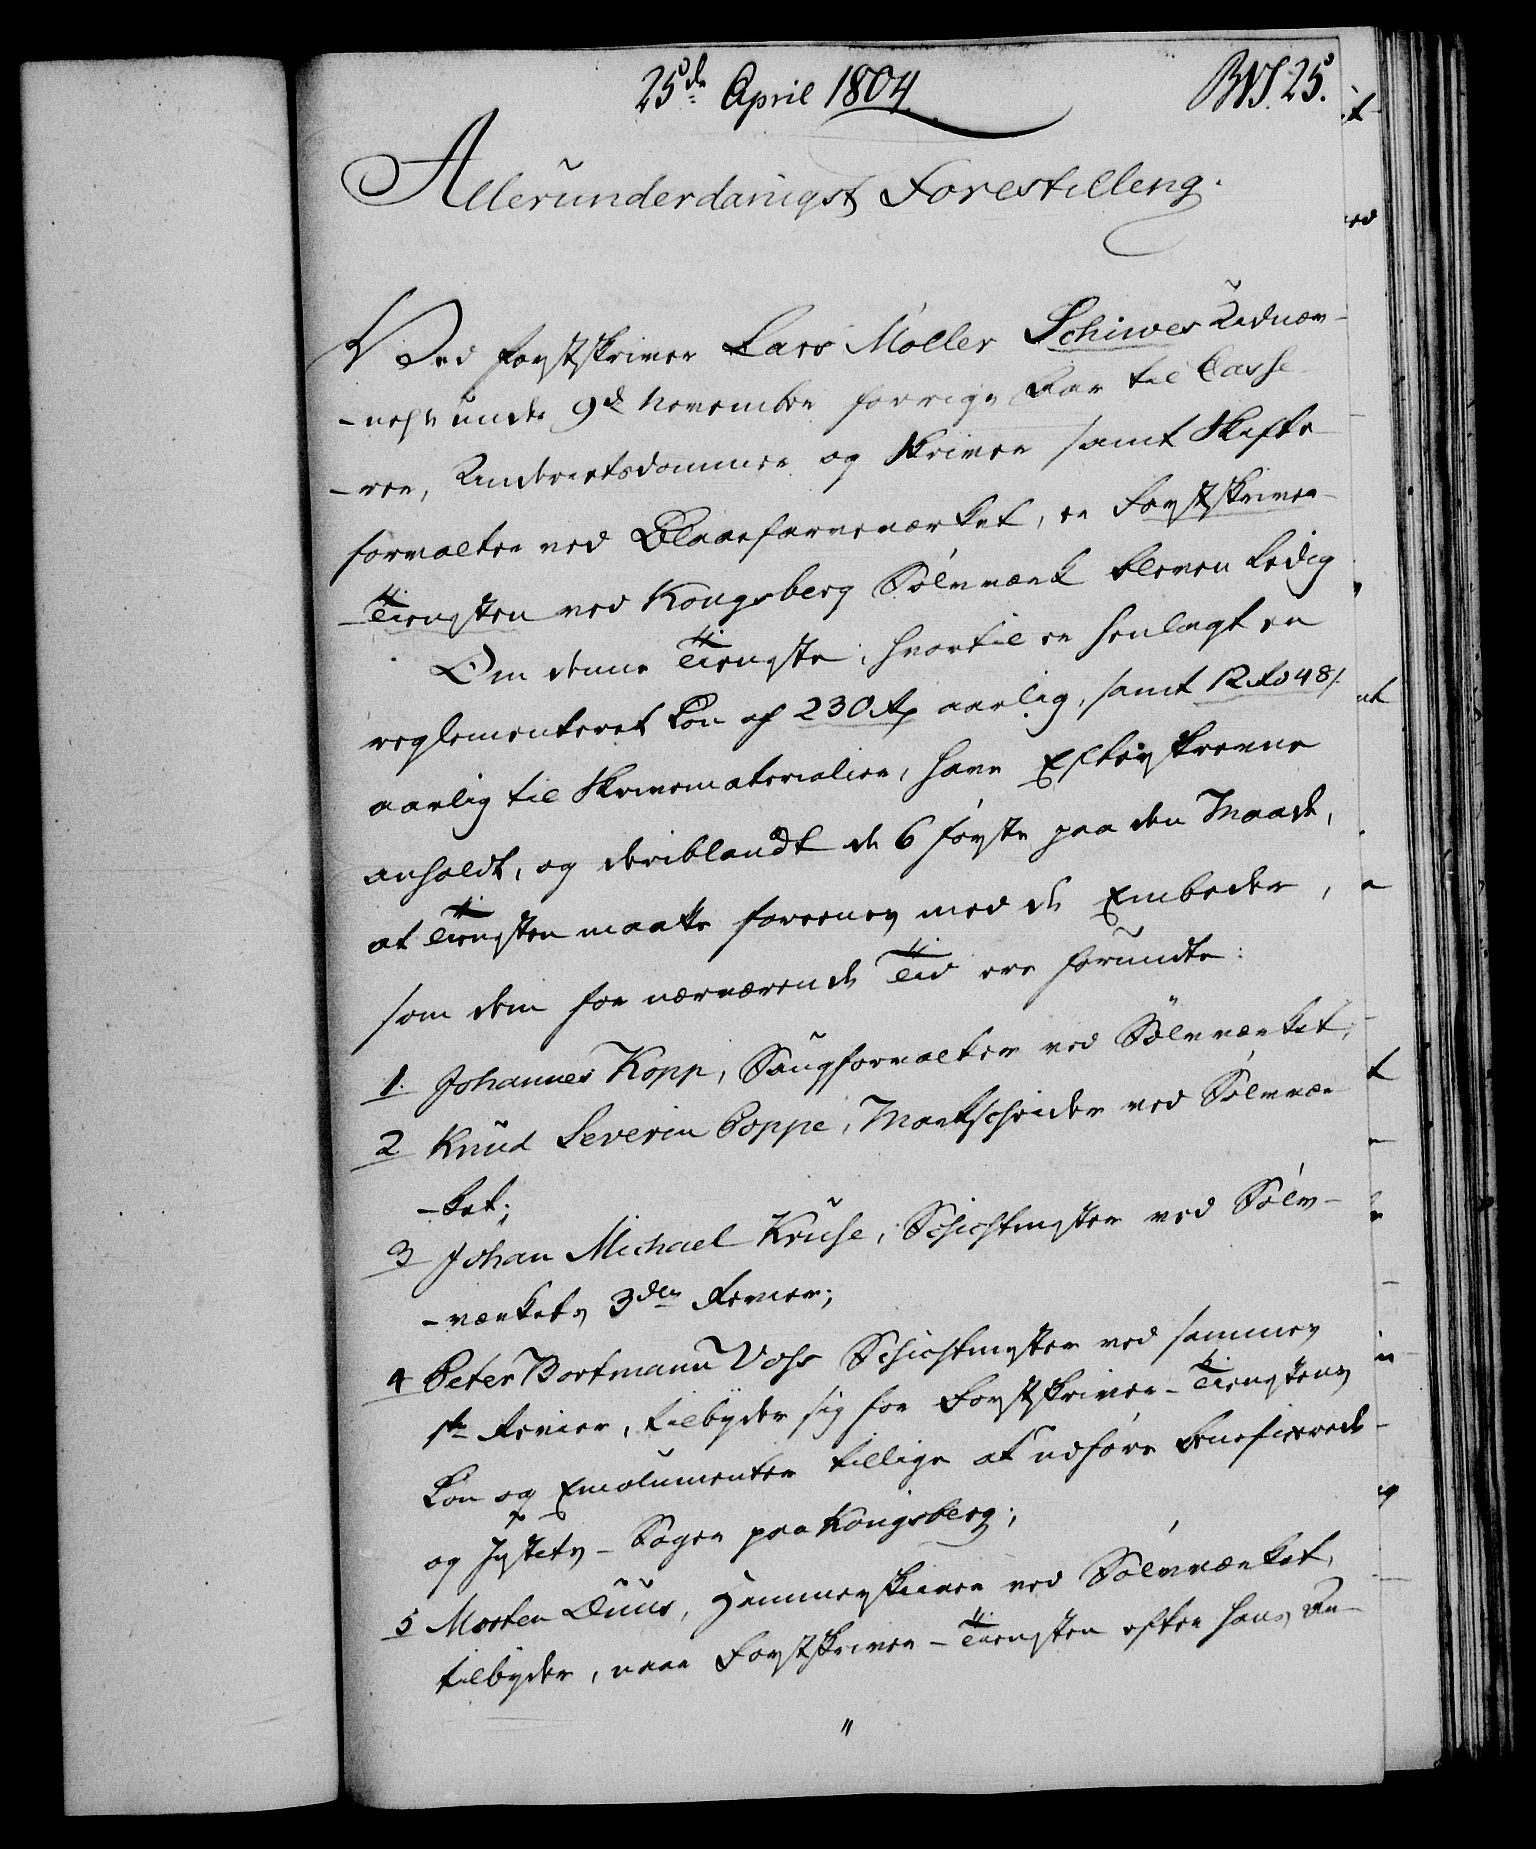 25de April 1804
BVS. 25.
Allerunderdanigst Forestilling.
Ved Forstskriver Lars Møller Schiwes Udnæv-
-nelse under 9de November forrige Aar til Casse-
-rer, Underretsdommer og Skriver samt Skifte
forvalter ved Blaaefarveværket, er Forstskriver-
-Tienesten ved Kongsberg Sølvværk bleven ledig
Om denne Tieneste, hvortil er henlagt en
reglementeret Løn af 230 Rd aarlig, samt 12 Rd 48 s.
aarlig til Skrivematerialier, have Efterskrevne
anholdt, og deriblandt de 6 første paa den Maade,
at Tienesten maatte foreenes med de Embeder,
som dem for nærværende Tid ere forundte:
1. Johannes Kopp, Saugforvalter ved Sølvværket;
2 Knud Severin Poppe, Markscheider ved Sølvvær
-ket;
3 Johan Michael Kruse, Schichtmester ved Sølv-
-værkets 3die Revier;
4 Peter Bortmann Voss Schichtmester ved sammes
1ste Revier, tilbyder sig for Forstskriver-Tienestens
Løn og Emolumenter tillige at udføre beneficerede-
og Justits-Sager paa Kongsberg;
5 Morten Duus, Hammerskriver ved Sølvværket,
tilbyder, naar Forstskriver-Tienesten efter hans An-
"